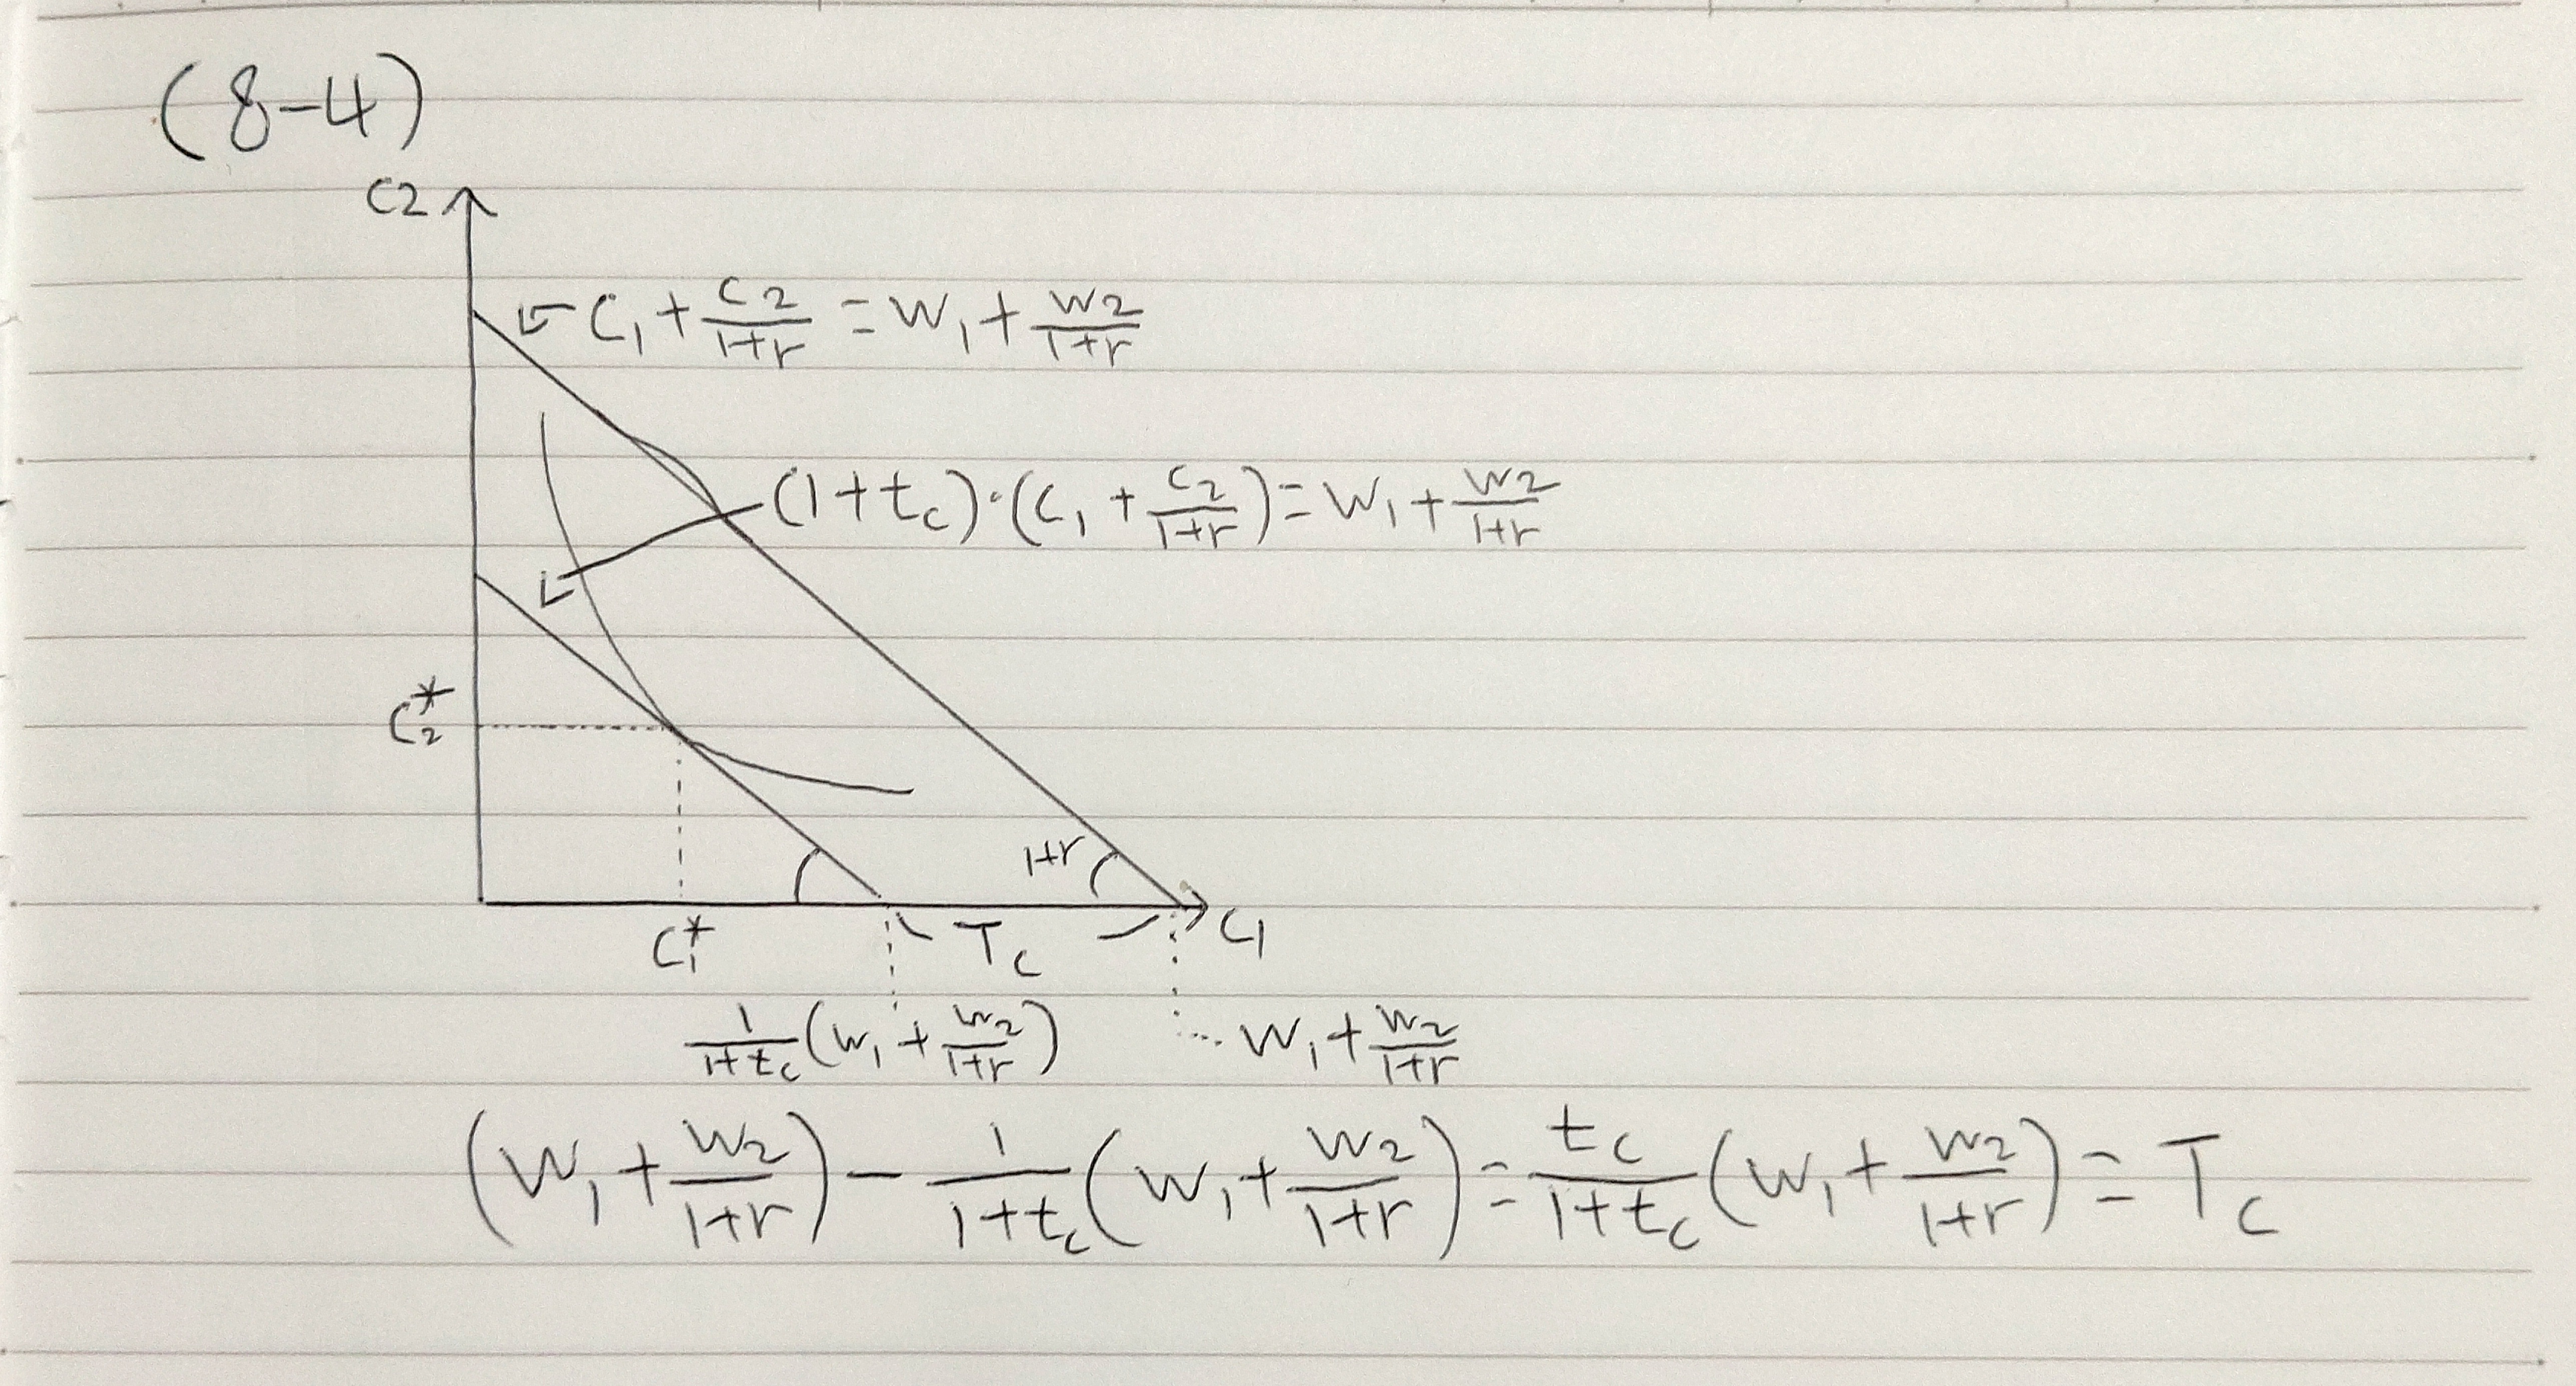 (8-4)
C2
← C₁ + C2/(1+r) = W₁ + W2/(1+r)
(1+t_c)·(C₁ + C2/(1+r)) = W₁ + W2/(1+r)
C₂*
1+r
C₁* T_c C₁
1/(1+t_c) (W₁ + W2/(1+r)) W₁ + W2/(1+r)
(W₁ + W2/(1+r)) - 1/(1+t_c) (W₁ + W2/(1+r)) = t_c/(1+t_c) (W₁ + W2/(1+r)) = T_c